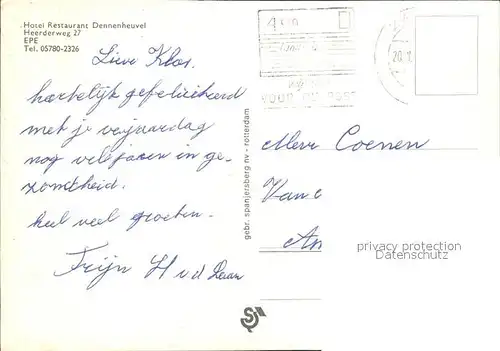 Hotel Restaurant Dennenheuvel
Heerderweg 27
EPE
Tel. 05780-2326
Lieve Klos.
hartelijk gefeliciteerd
met je verjaardag
nog vele jaren in ge-
zondheid.
heel veel groeten.
Trijn H v d Laan
gebr. spanjersberg nv - rotterdam
Mevr Coenen
Van
An
privacy protection
Datenschutz